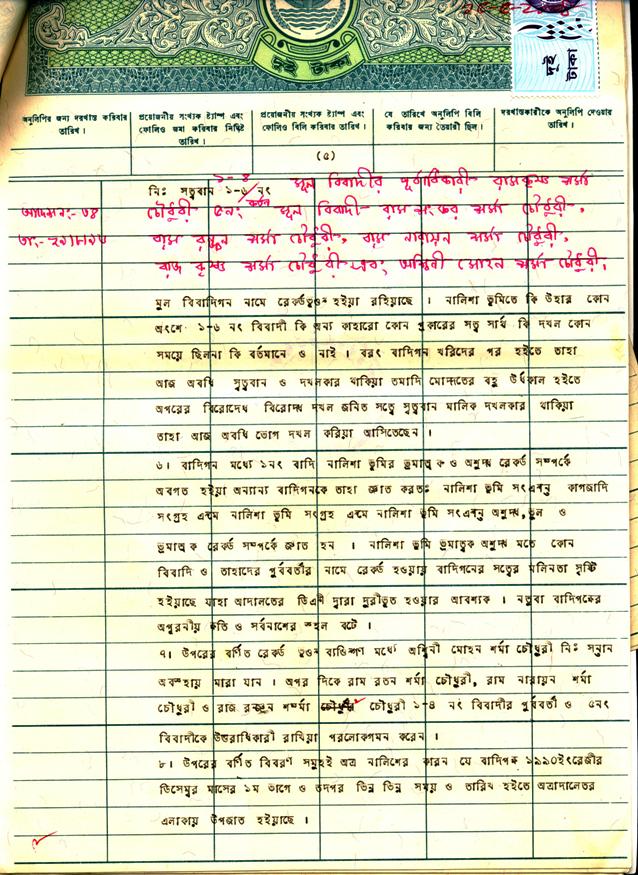 দুই টাকা
দুই টাকা
অনুলিপির জন্য দরখাস্ত করিবার তারিখ।
প্রয়োজনীয় সংখ্যক ষ্ট্যাম্প এবং ফোলিও জমা করিবার নির্দিষ্ট তারিখ।
প্রয়োজনীয় সংখ্যক ষ্ট্যাম্প এবং ফোলিও বিলি করিবার তারিখ।
যে তারিখে অনুলিপি বিলি করিবার জন্য তৈয়ারী ছিল।
দরখাস্তকারীকে অনুলিপি দেওয়ার তারিখ।
(৫)
নিঃ সত্ত্ববান ১-৬ নং মূল বিবাদীর পূর্বাধিকারী রামকৃষ্ণ শর্মা
চৌধুরী ৫নং মূল বিবাদী রাম শংকর শর্মা চৌধুরী,
শর্মা চৌধুরী, রাম নারায়ন শর্মা চৌধুরী,
রাজ কৃষ্ণ শর্মা চৌধুরী এবং অশ্বিনী মোহন শর্মা চৌধুরী,
মুল বিবাদিগন নামে রেকর্ডভুক্ত হইয়া রহিয়াছে । নালিশা ভুমিতে কি উহার কোন
অংশে ১-৬ নং বিবাদী কি অন্য কাহারো কোন প্রকারের সত্ব সার্থ কি দখল কোন
সময়ে ছিলনা কি বর্তমানে ও নাই । বরং বাদিগন খরিদের পর হইতে তাহা
আজ অবধি সুত্ববান ও দখলকার থাকিয়া তমাদি মোদ্দতের বহু উর্ধকাল হইতে
অপরের বিরোদ্ধে বিরোদ্ধ দখল জনিত সত্বে সুত্ববান মালিক দখলকার থাকিয়া
তাহা আজ অবধি ভোগ দখল করিয়া আসিতেছেন ।
৬। বাদিগন মধ্যে ১নং বাদি নালিশা ভুমির ভ্রমাত্মক ও অশুদ্ধ রেকর্ড সম্পর্কে
অবগত হইয়া অন্যান্য বাদিগনকে তাহা জ্ঞাত করতঃ নালিশা ভুমি সংক্রান্ত কাগজাদি
সংগ্রহ ক্রমে নালিশা ভুমি সংগ্রহ ক্রমে নালিশা ভুমি সংক্রান্ত অশুদ্ধ,ভুল ও
ভ্রমাত্মক রেকর্ড সম্পর্কে জ্ঞাত হন । নালিশা ভুমি ভ্রমাত্মক অশুদ্ধ মতে কোন
বিবাদি ও তাহাদের পুর্ববর্তীর নামে রেকর্ড হওয়ায় বাদিগনের সত্বের মলিনতা সৃষ্টি
হইয়াছে যাহা আদালতের ডিক্রী দ্বারা দুরীভুত হওয়ার আবশ্যক । নতুবা বাদিপক্ষের
অপুরনীয় ক্ষতি ও সর্বনাশের স্থল বটে ।
৭। উপরের বর্ণিত রেকর্ড ভুক্ত ব্যক্তিগণ মধ্যে অশ্বিনী মোহন শর্মা চৌধুরী নিঃ সন্তান
অবস্থায় মারা যান । অপর দিকে রাম রতন শর্মা চৌধুরী, রাম নারায়ন শর্মা
চৌধুরী ও রাজ শর্মা চৌধুরী ১-৪ নং বিবাদীর পুর্ববর্তী ও ৫নং
বিবাদীকে উত্তরাধিকারী রাখিয়া পরলোকগমন করেন ।
৮। উপরের বর্ণিত বিবরণ সমুহই অত্র নালিশের কারন যে বাদিপক্ষ ১৯৯০ইংরেজীর
ডিসেম্বর মাসের ১ম ভাগে ও তদপর ভিন্ন ভিন্ন সময় ও তারিখ হইতে অত্রাদালতের
এলাকায় উপজাত হইয়াছে ।